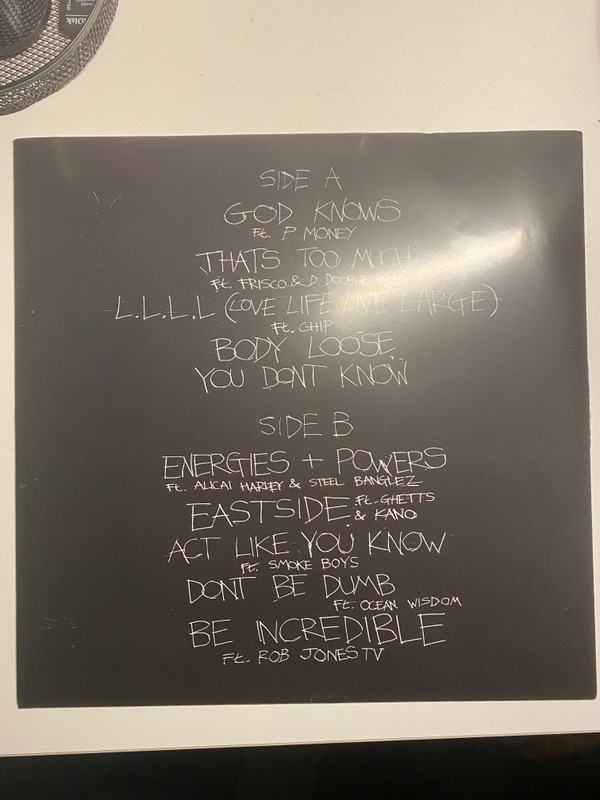 SIDE A
GOD KNOWS
Ft. P MONEY
THATS TOO MUCH
Ft. FRISCO & D
L.L.L.L (LOVE LIFE LIVE LARGE)
Ft. CHIP
BODY LOOSE
YOU DONT KNOW
SIDE B
ENERGIES + POWERS
Ft. ALICAI HARLEY & STEEL BANGLEZ
EASTSIDE Ft. GHETTS
& KANO
ACT LIKE YOU KNOW
Ft. SMOKE BOYS
DONT BE DUMB
Ft. OCEAN WISDOM
BE INCREDIBLE
Ft. ROB JONES TV